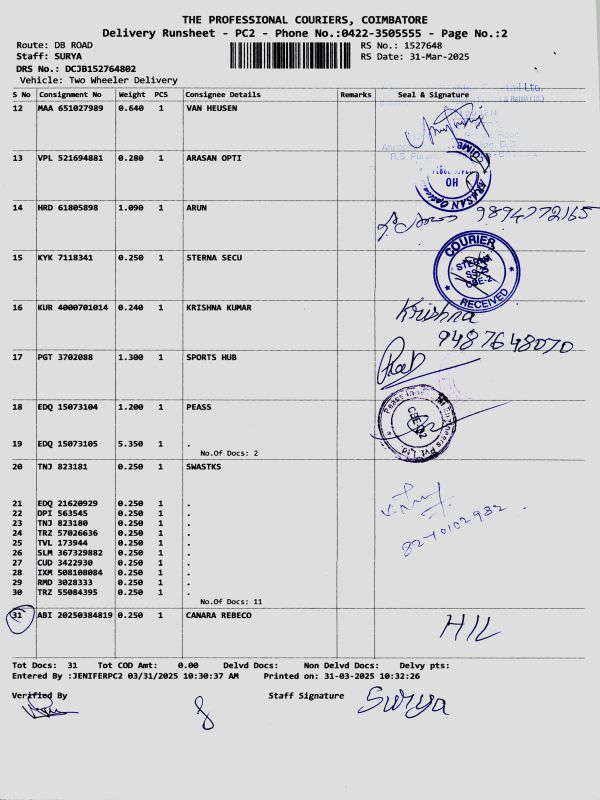 THE PROFESSIONAL COURIERS, COIMBATORE
Delivery Runsheet - PC2 - Phone No.:0422-3505555 - Page No.:2
Route: DB ROAD RS No.: 1527648
Staff: SURYA RS Date: 31-Mar-2025
DRS No.: DCJB152764802
Vehicle: Two Wheeler Delivery
S No Consignment No Weight PCS Consignee Details Remarks Seal & Signature
12 MAA 651027989 0.640 1 VAN HEUSEN
13 VPL 521694881 0.280 1 ARASAN OPTI
HO
ARASAN
14 HRD 61805898 1.090 1 ARUN
9894772165
15 KYK 7118341 0.250 1 STERNA SECU
COURIER
STERNA
CBE-2
RECEIVED
16 KUR 4000701014 0.240 1 KRISHNA KUMAR
Krishna
9487648070
17 PGT 3702088 1.300 1 SPORTS HUB
18 EDQ 15073104 1.200 1 PEASS
Peass
Engineers Pvt Ltd.
19 EDQ 15073105 5.350 1 .
No.Of Docs: 2
20 TNJ 823181 0.250 1 SWASTKS
21 EDQ 21620929 0.250 1 .
22 DPI 563545 0.250 1 .
23 TNJ 823180 0.250 1 .
24 TRZ 57026636 0.250 1 .
25 TVL 173944 0.250 1 .
26 SLM 367329882 0.250 1 .
27 CUD 3422930 0.250 1 .
28 IXM 508108084 0.250 1 .
29 RMD 3028333 0.250 1 .
30 TRZ 55084395 0.250 1 .
No.Of Docs: 11
31 ABI 20250384819 0.250 1 CANARA REBECO
HIL
Tot Docs: 31 Tot COD Amt: 0.00 Delvd Docs: Non Delvd Docs: Delvy pts:
Entered By :JENIFERPC2 03/31/2025 10:30:37 AM Printed on: 31-03-2025 10:32:26
Verified By Staff Signature Surya